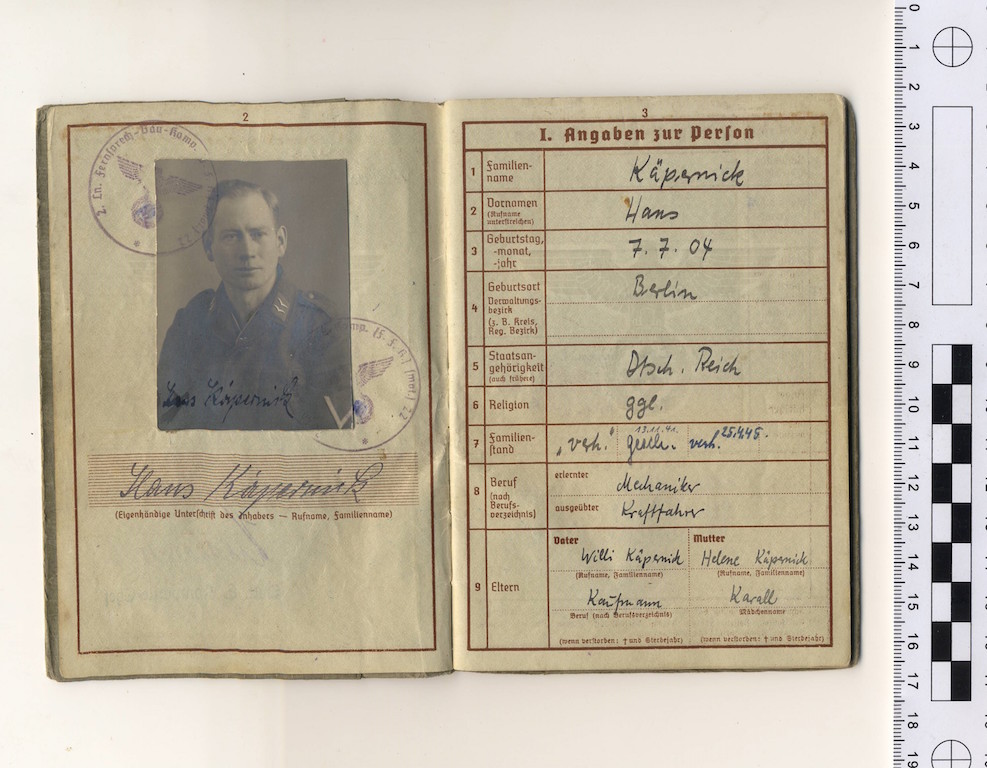 2
2. Ln. Fernsprech-Bau-Komp.
Hans Käpernick
Hans Käpernick
(Eigenhändige Unterschrift des Inhabers — Rufname, Familienname)
3
I. Angaben zur Person
1 Familien-
name
Käpernick
2 Vornamen
(Rufname
unterstreichen)
Hans
3 Geburtstag,
-monat,
-jahr
7. 7. 04
4 Geburtsort
Verwaltungs-
bezirk
(z. B. Kreis,
Reg. Bezirk)
Berlin
5 Staatsan-
gehörigkeit
(auch frühere)
Dtsch. Reich
6 Religion
ggl.
7 Familien-
stand
„verh.“ gesch. verh.
13.11.41.
8 Beruf
(nach
Berufs-
verzeichnis)
erlernter
Mechaniker
ausgeübter
Kraftfahrer
9 Eltern
Vater
Willi Käpernick
(Rufname, Familienname)
Kaufmann
Beruf (nach Berufsverzeichnis)
(wenn verstorben: † und Sterbejahr)
Mutter
Helene Käpernick
(Rufname, Familienname)
Karall
Mädchenname
(wenn verstorben: † und Sterbejahr)
0
1
2
3
4
5
6
7
8
9
10
11
12
13
14
15
16
17
18
19